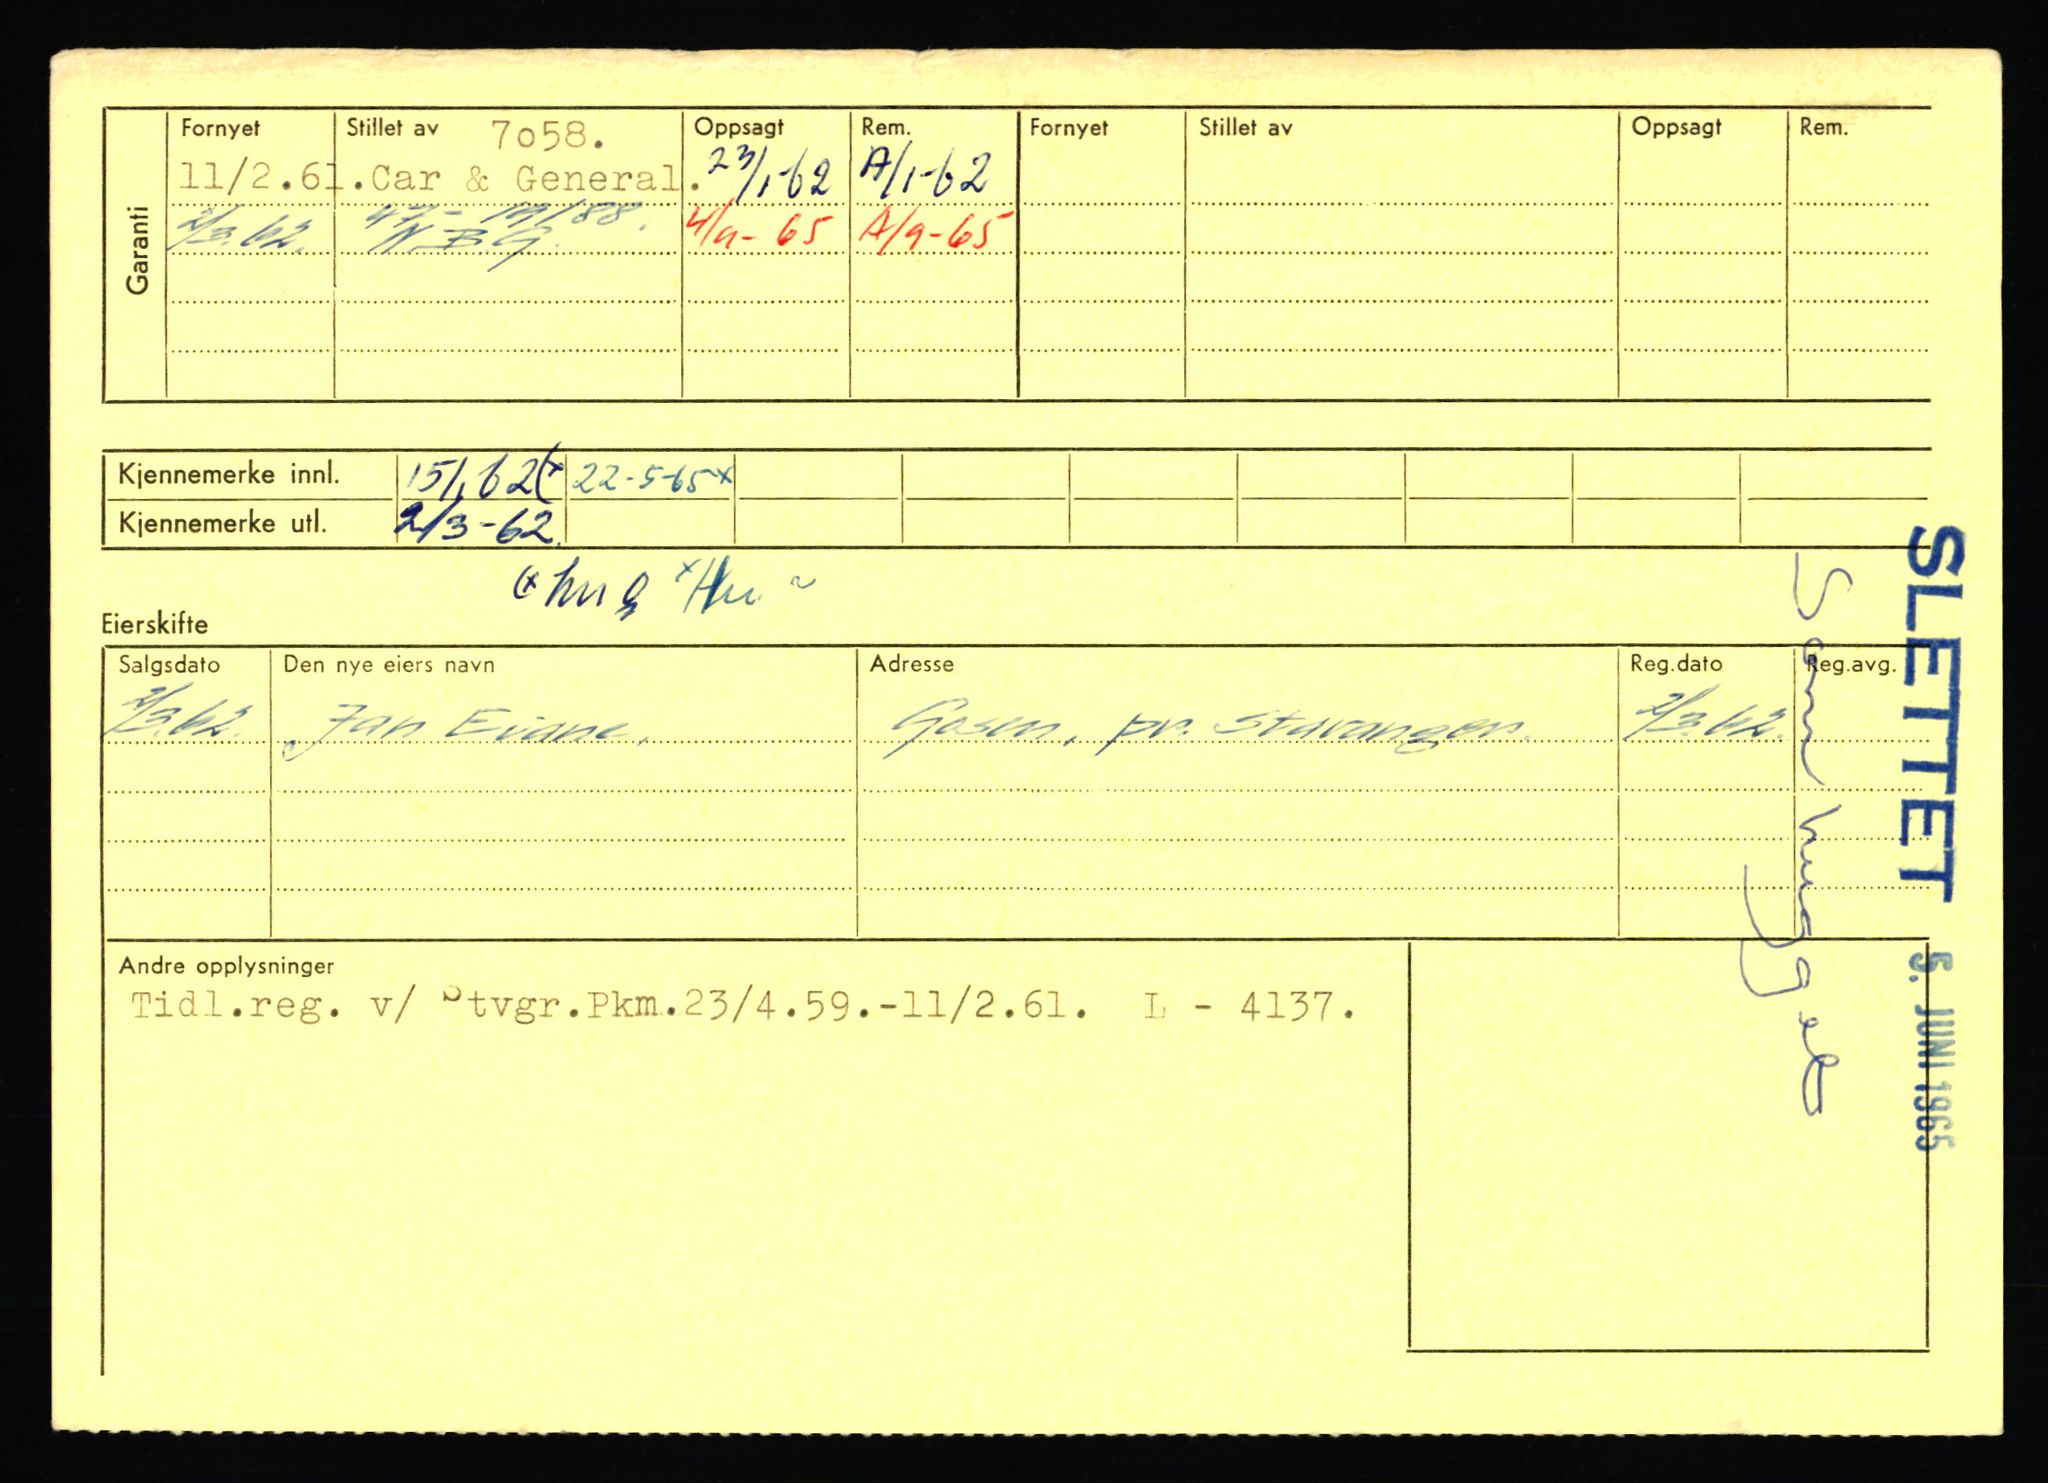 Garanti
Fornyet Stillet av 7o58. Oppsagt Rem. Fornyet Stillet av Oppsagt Rem.
11/2.61. Car & General. 23/1-62 A/1-62
2/3.62. N.B.G. 4/9-65 A/9-65
Kjennemerke innl. 15/1 62(x 22-5-65x
Kjennemerke utl. 2/3-62.
Eierskifte
Salgsdato Den nye eiers navn Adresse Reg.dato Reg.avg.
2/3.62. Jan Eiane, Gosen, pr. Stavanger. 2/3.62.
Andre opplysninger
Tidl.reg. v/ Stvgr.Pkm.23/4.59.-11/2.61. L - 4137.
SLETTET 5. JUNI 1965
Som hugget